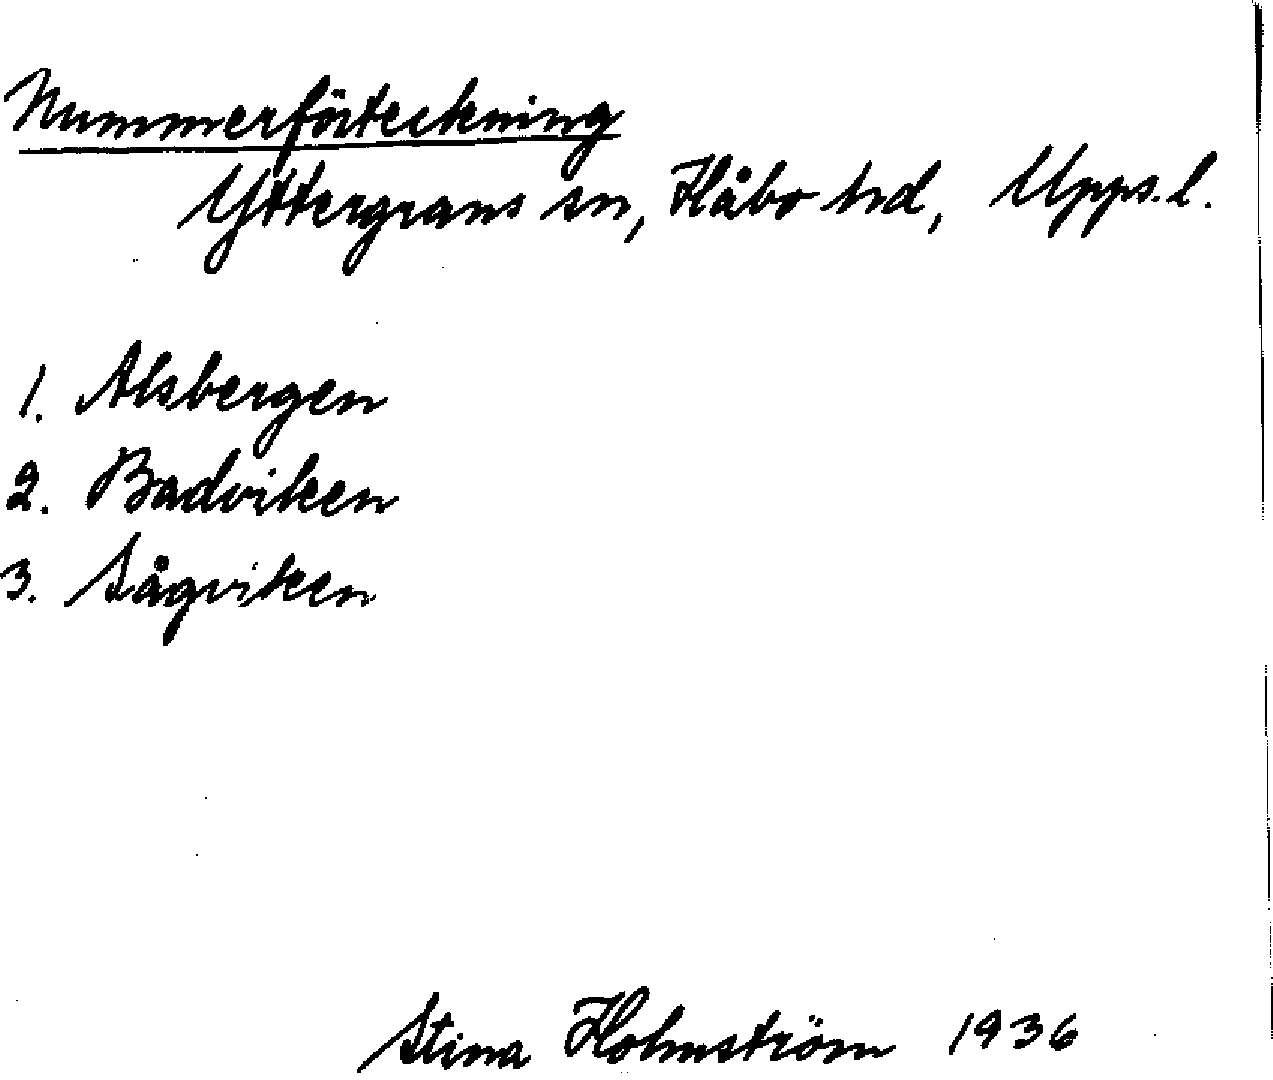 Nummerförteckning
Yttergrans sn, Håbo hd, Upps. l.
1. Alsbergen
2. Badviken
3. Sågviken
Stina Holmström 1936